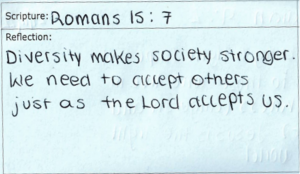 Scripture: Romans 15:7
Reflection:
Diversity makes society stronger.
We need to accept others
just as the Lord accepts us.